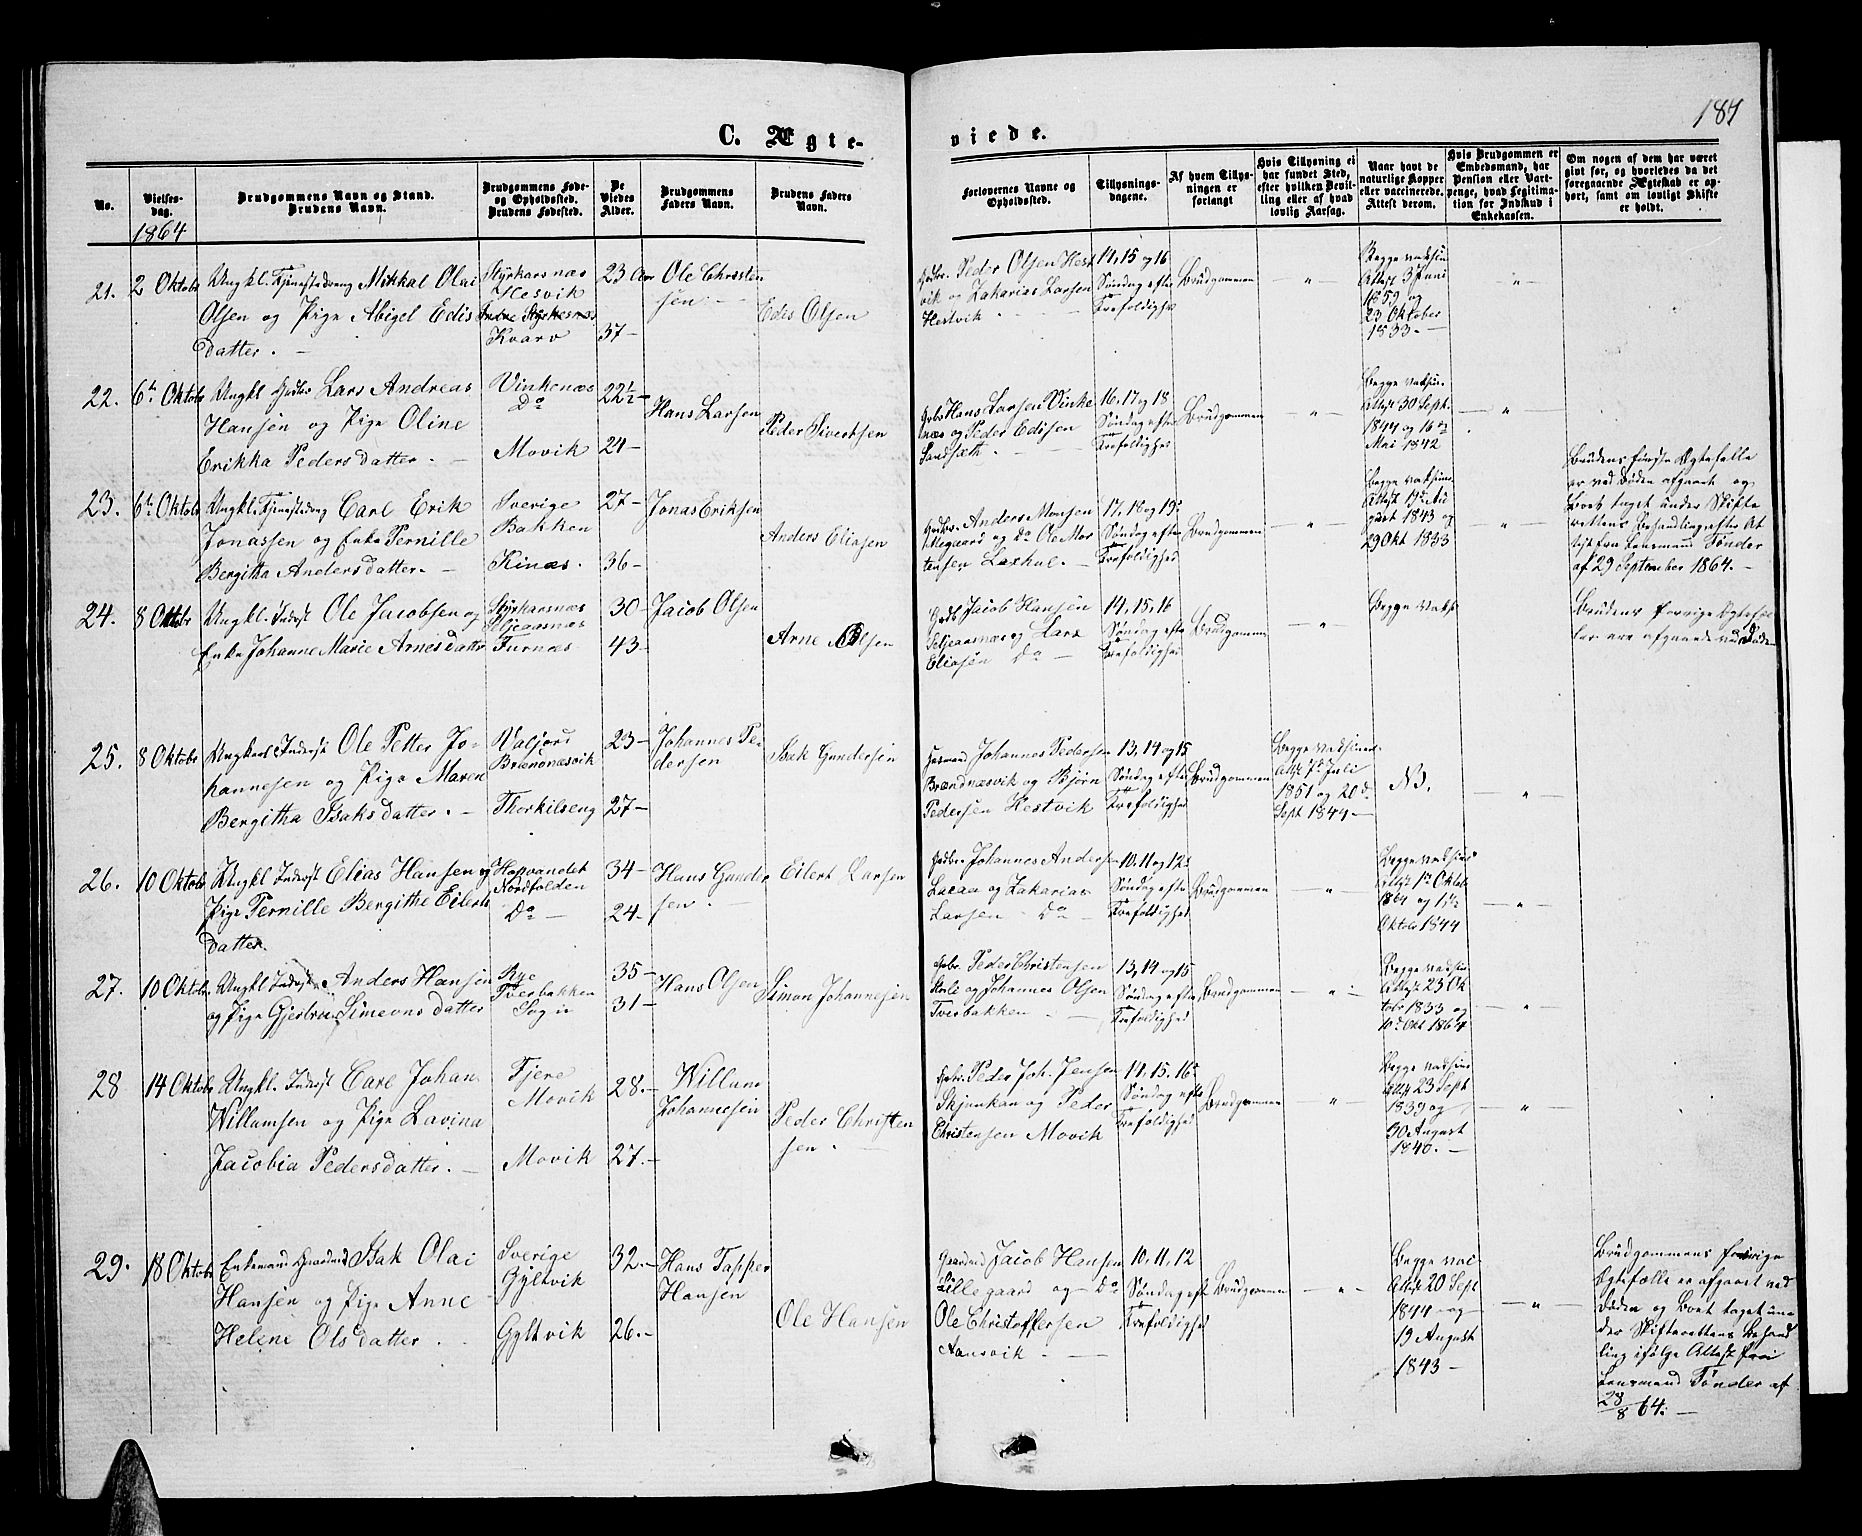 187
C. Ægte-
viede.
No.
Vielses-
dag.
1864
Brudgommens Navn og Stand.
Brudens Navn.
Brudgommens Føde-
og Opholdssted.
Brudens Fødested.
De
Viedes
Alder.
Brudgommens
Faders Navn.
Brudens Faders
Navn.
Forlovernes Navne og
Opholdssted.
Tillysnings-
dagene.
Af hvem Tillys-
ningen er
forlangt
Hvis Tillysning ei
har fundet Sted,
efter hvilken Bevil-
ling eller af hvad
lovlig Aarsag.
Naar havt de
naturlige Kopper
eller vaccinerede.
Attest derom.
Hvis Brudgommen er
Embedsmand, har
Pension eller Vart-
penge, hvad Legitima-
tion for Indskud i
Enkekassen.
Om nogen af dem har været
givt før, og hvorledes da det
foregaaende Ægteskab er op-
hørt, samt om lovligt Skifte
er holdt.
21.
2 Oktobr
Ungkl. Tjenestedreng Mikkal Olai
Olsen og Pige Abigel Edis
datter. —
Styrkarsnæs
Hesvik
Indre Styrkesnæs
Kvarv
23 Aar
37—
Ole Christen
sen —
Edis Olsen
Gdbr. Peder Olsen Hest
vik og Zakarias Larsen
Hestvik
14, 15 og 16
Søndag efter
Trefoldighed
Brudgommen
— " —
Begge vaksin
Attest 3 Juni
1859 og
23 Oktober
1833. —
— " —
22.
6te Oktobr
Ungkl Gdbr Lars Andreas
Hansen og Pige Oline
Erikka Pedersdatter. —
Vinkenæs
Do
Movik
22½—
24—
Hans Larsen
Peder Sivertsen
Gdbr Hans Larsen Vinke
næs og Peder Edisen
Sandsæth. —
16, 17 og 18
Søndag efter
Trefoldighed
Brudgommen
— " —
Begge vaksin.
Attest 30 Sept.
1844 og 16de
Mai 1842
— " —
23.
6te Oktobr
Ungkl. Tjenestedreng Carl Erik
Jonassen og Enke Pernille
Bergitha Andersdatter. —
Sverige
Bakken
Kinæs.
27—
36—
Jonas Eriksen
Anders Eliasen
Gdbr. Anders Monsen
Lillegaard og Do Ole Mor
tensen Laxhul. —
17, 18 og 19de
Søndag efter
Trefoldighed
Brudgommen
— " —
Begge vaksin.
Attest 19de Au
gust 1843 og
29 Okt 1833
— " —
Brudens første Ægtefælle
er ved Døden afgaaet og
Boet taget under Skifte
rettens Behandling efter At
test fra Lensmand Tønder
af 29 September 1864. —
24.
8 Oktobr
Ungkl. Inderst Ole Jacobsen og
Enke Johanne Marie Arnesdatter
Styrkarsnæs
Seljeaasnæs
Furnæs
30—
43—
Jacob Olsen
Arne Olsen
Gdb Jacob Hansen
Seljeaasnæs og Lars
Eliasen Do —
14, 15, 16
Søndag efter
Trefoldighed
Brudgommen
— " —
Begge vaks.
Brudens forrige Ægtefæl
ler ere afgaaede ved Døden
25.
8 Oktobr
Ungkarl Inderst Ole Petter Jo-
hannesen og Pige Maren
Bergitha Isaksdatter. —
Valjord
Brændnæsvik
Thorkilseng
23—
27—
Johannes Pe-
dersen
Isak Gundersen
Husmand Johannes Pedersen
Brændnæsvik og Bjørn
Pedersen Hestvik
13, 14 og 15
Søndag efter
Trefoldighed
Brudgommen
Begge vaksiner.
Attest 7de Juli
1851 og 20 d.
Sept 1844—
NB.
— " —
26.
10 Oktobr
Ungkl Inderst Elias Hansen og
Pige Pernille Bergithe Eilerts
datter.
Hopvandet
Nordfolden
Do —
34—
24—
Hans Gunder
sen. —
Eilert Larsen
Gdbr. Johannes Andersen
Lacaa og Zakarias
Larsen Do
10, 11 og 12te
Søndag efter
Trefoldighed
Brudgommen
— " —
Begge vaksin
Attest 1ste Oktob.
1864 og
Oktobr 1844
— " —
27.
10 Oktobr.
Ungkl Inderst Anders Hansen
og Pige Gjertru Simeonsdatter
Rye
Tverbakken
Sogn
35—
31—
Hans Olsen
Simon Johannesen
Gdbr. Peder Christensen
og Johannes Olsen
Tverbakken —
13, 14 og 15
Søndag efter
Trefoldighed
Brudgommen
— " —
Begge vaksin
Attest 23 Ok
tobr 1833 og
10de Okt 1864
— " —
28
14 Oktobr
Ungkl. Inderst Carl Johan
Willumsen og Pige Lavina
Jacobia Pedersdatter. —
Tjere
Movik
Movik
28.—
27.—
Willum
Johannesen
Peder Christen
sen. —
Gdbr. Peder Joh. Jensen
Skjunkan og Peder
Christensen Movik
14, 15, 16de
Søndag efter
Trefoldighed
Brudgommen
— " —
Begge vaksin
Attest 23 Sept
1839 og
30 August
1840. —
— " —
29.
18 Oktobr
Enkemand Gaardmd Isak Olai
Hansen og Pige Anne
Helene Olsdatter.
Sverige
Gyltvik
Gyltvik
32.—
26.—
Hans Tapper
Hansen
Ole Hansen
Gaardmd Jacob Hansen
Lillegaard og Do
Ole Christoffersen
Aansvik —
10, 11, 12
Søndag eft
Trefoldighed
Brudgommen
— " —
Begge vac.
Attest 20 Sept
1844 og
19 August
1843 —
— " —
Brudgommens forrige
Ægtefælle er afgaaet ved
Døden og Boet taget un-
der Skifterettens Behand
ling ifølge Attest fra
Lensmand Tønder af
28/8 64. —